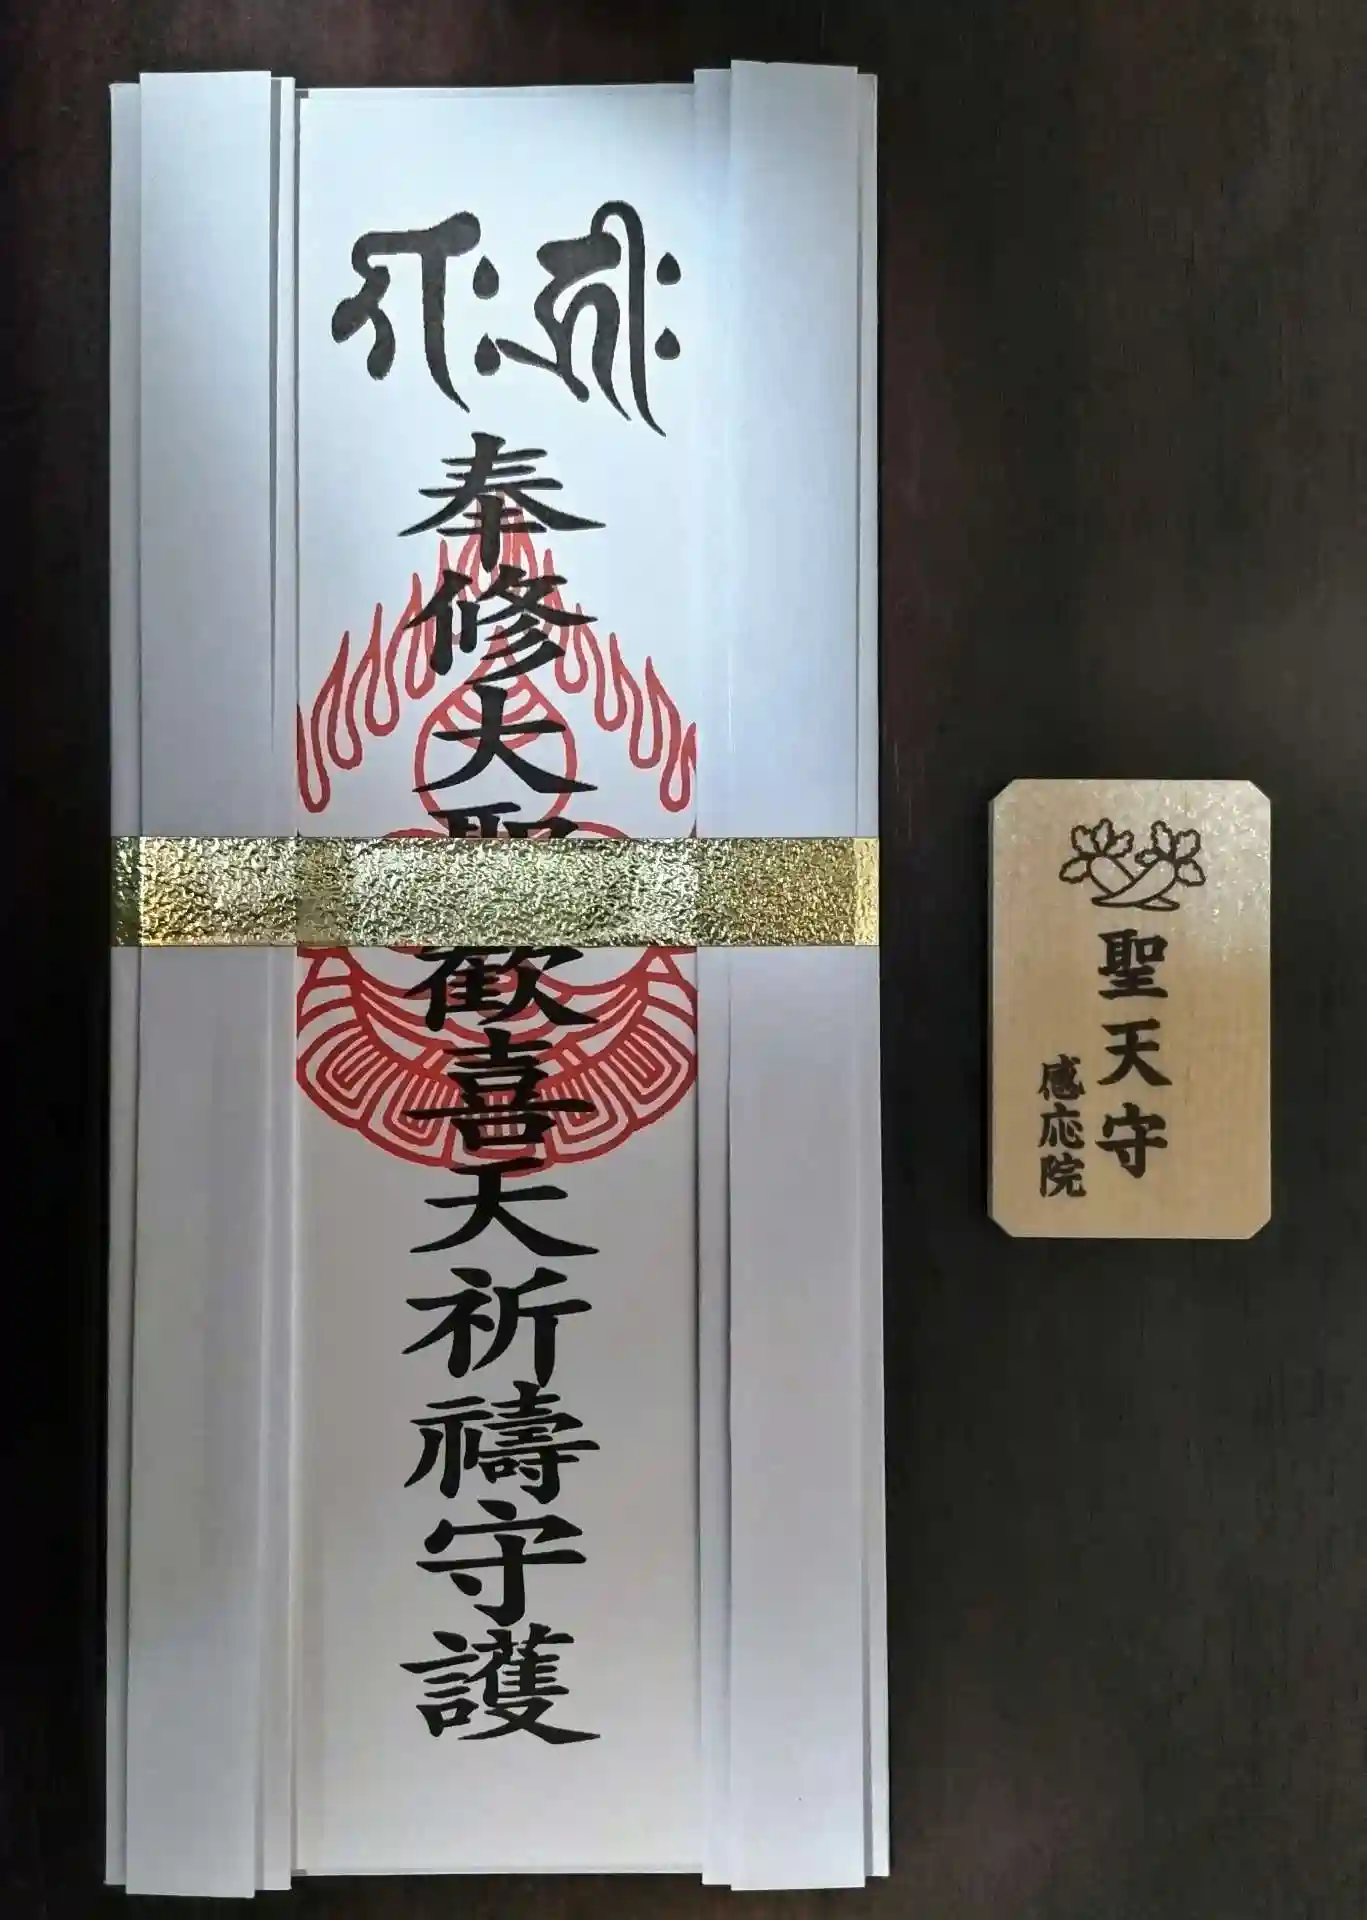 奉修大聖歓喜天祈禱守護
聖天守
感応院